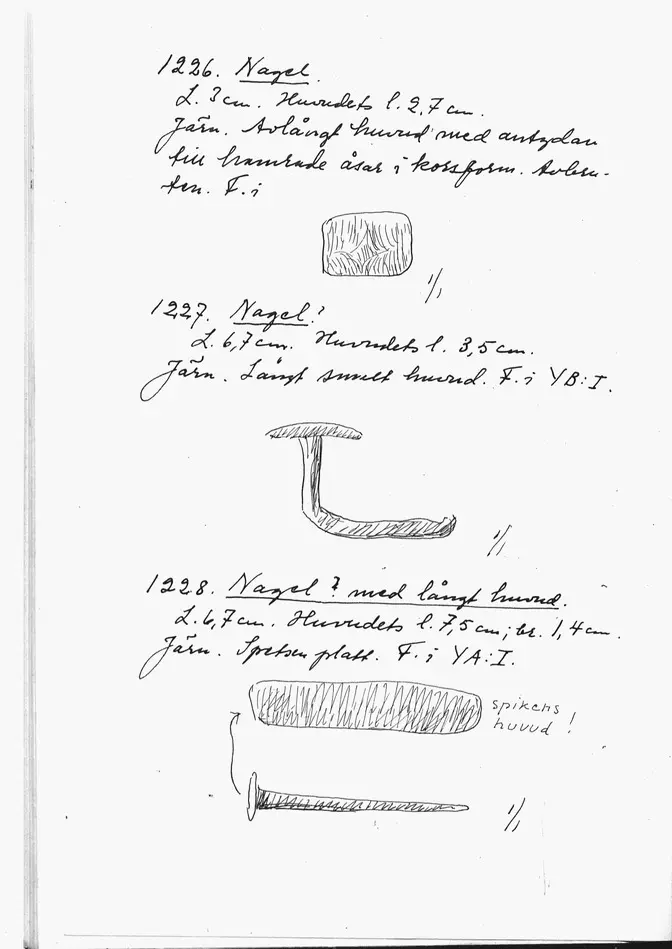 1226. Nagel.
L. 3 cm. Huvudets l. 2,7 cm.
Järn. Avlångt huvud med antydan
till hamrade åsar i korsform. Avbru-
ten. F. i
1/1
1227. Nagel?
L. 6,7 cm. Huvudets l. 3,5 cm.
Järn. Långt smalt huvud. F. i YB:I.
1/1
1228. Nagel? med långt huvud.
L. 6,7 cm. Huvudets l. 7,5 cm; br. 1,4 cm.
Järn. Spetsen platt. F. i YA:I.
spikens
huvud!
1/1